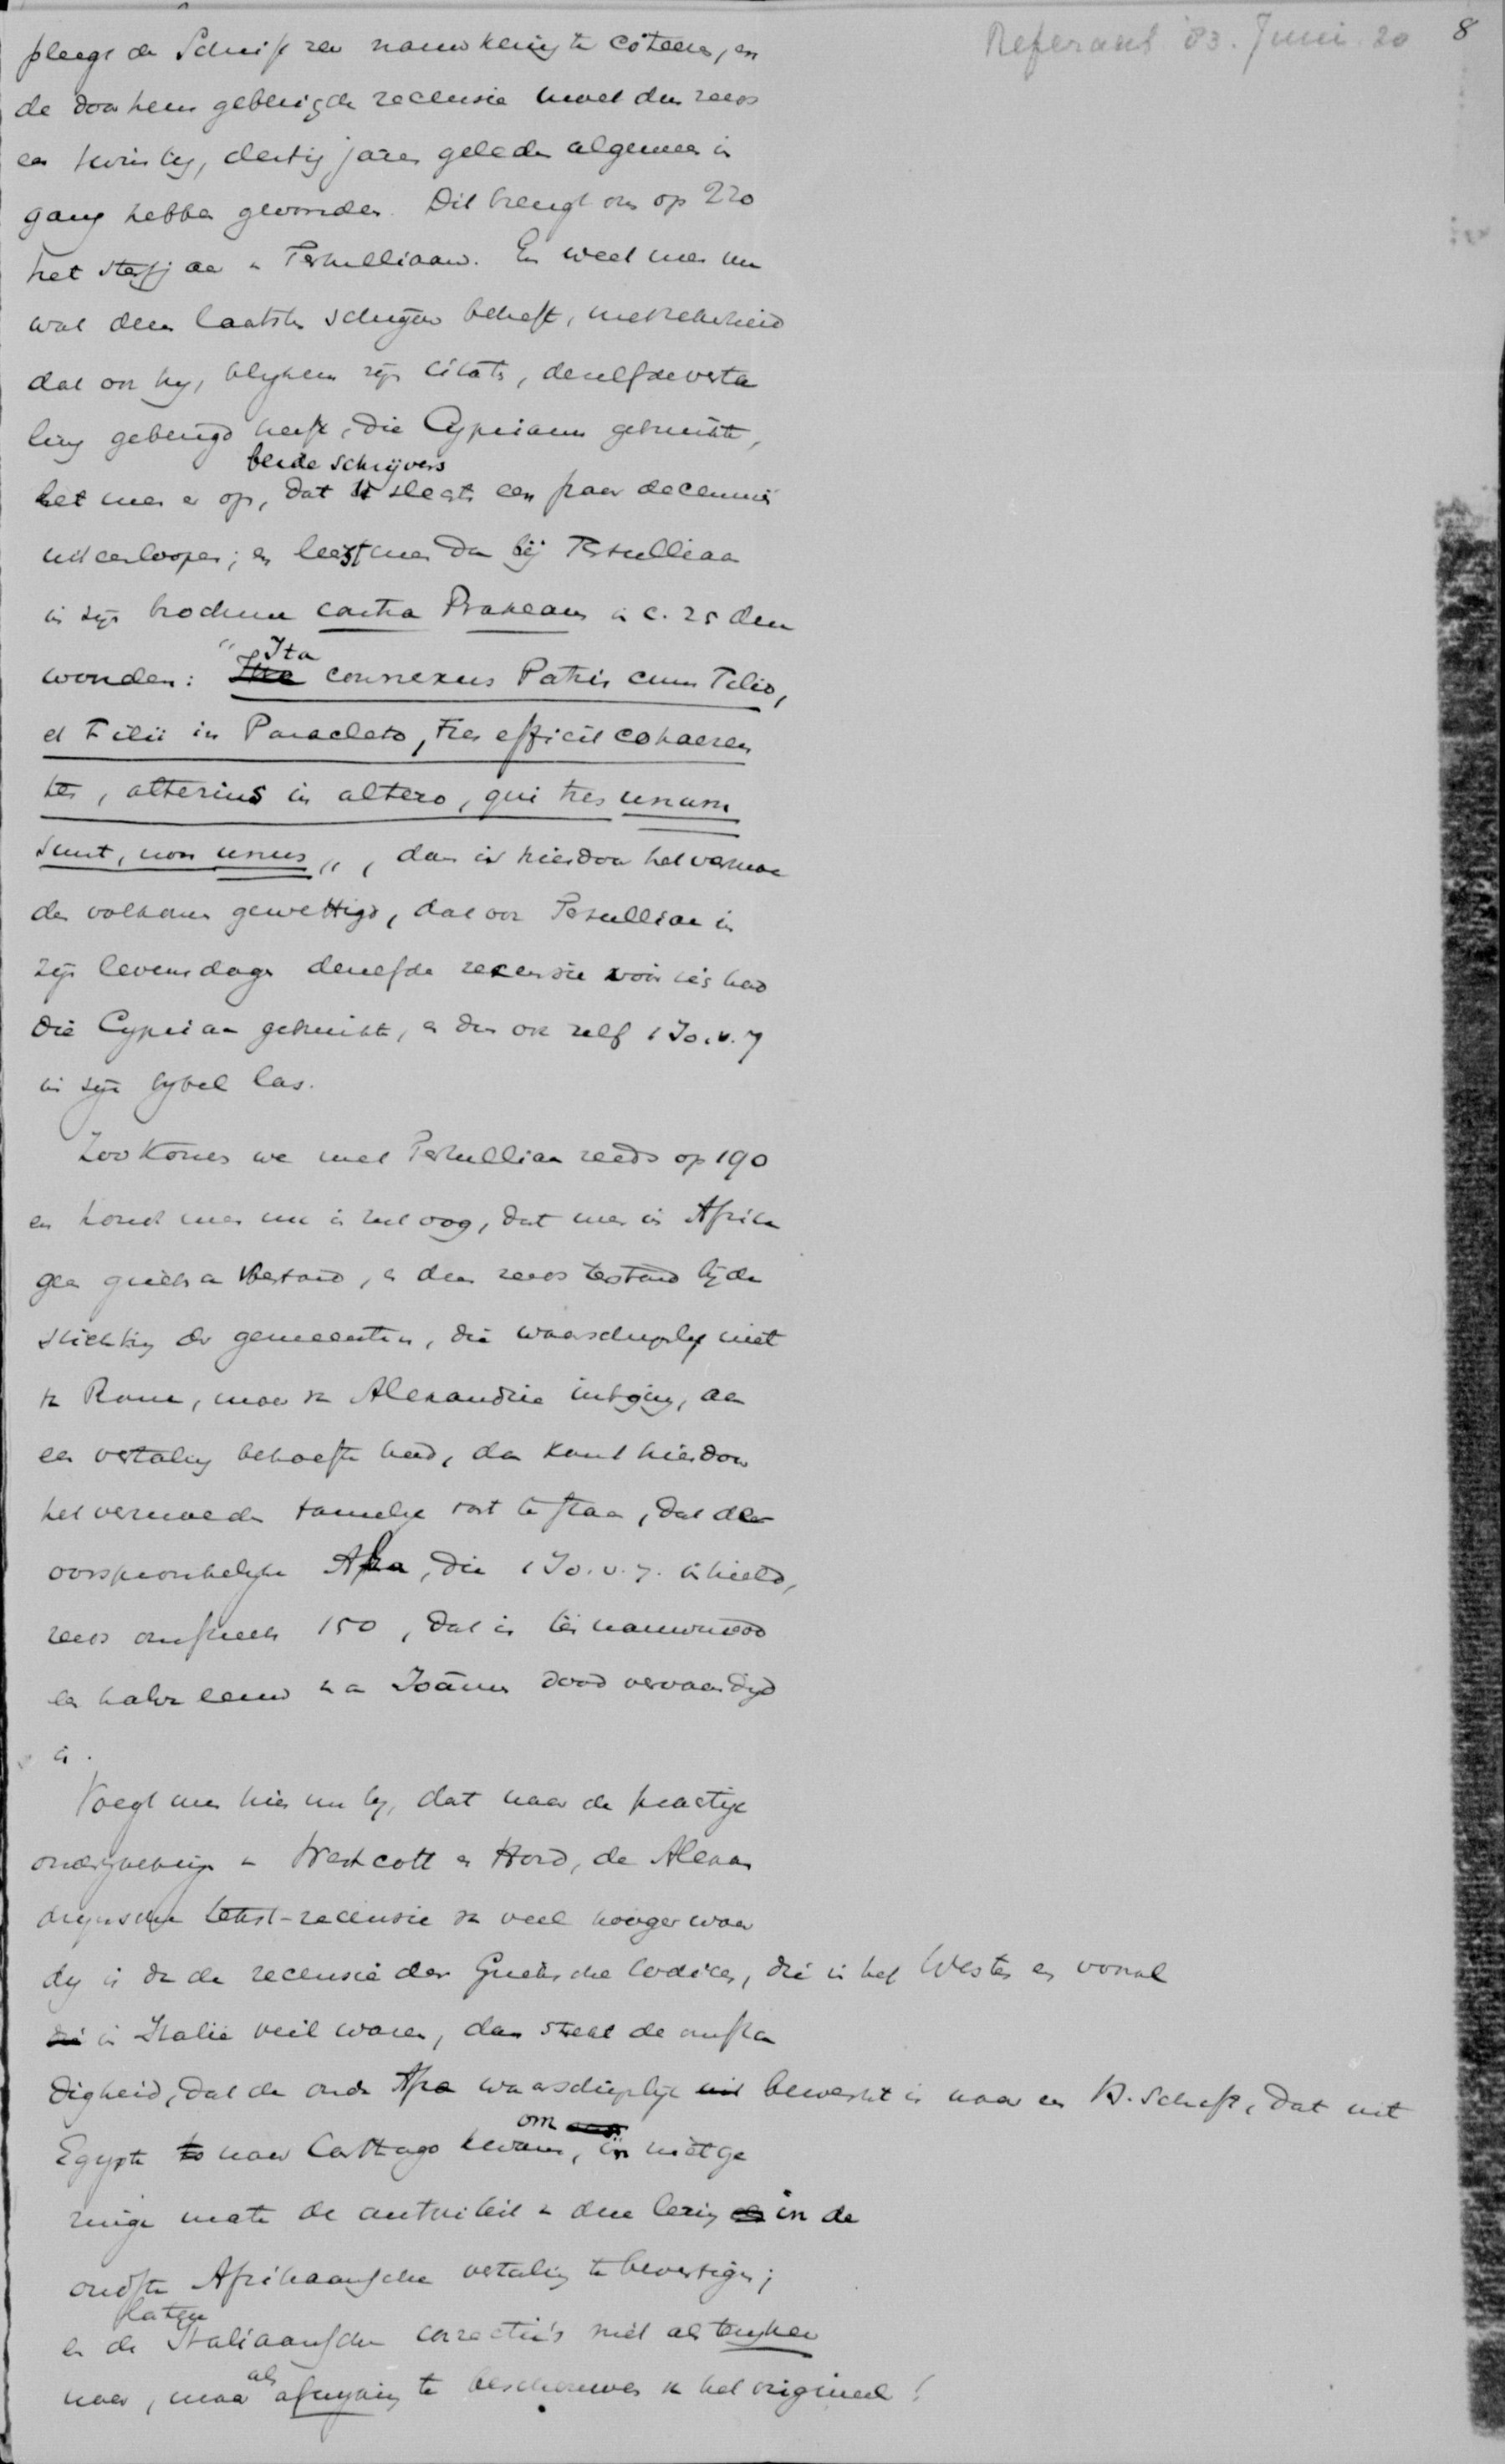 Referaat '83. Juni 20 8
pleegt de Schrift zeer nauwkeurig te citeeren, en
de door hem gebezigde recensie moet dus reeds
een twintig, dertig jaren geleden algemeen in
gang hebben gevonden. Dit brengt ons op 220
het sterfjaar v Tertulliaan. En weet men nu
wat deen laatsten schrijver betreft, met zekerheid
dat ook hij, blijkens zijn citaten, dezelfde verta
ling gebezigd heeft, die Cypriaan gebruikte,
beide schrijvers
let men er op, dat slechts een paar decenniën
uiteenloopen; en leest men dan bij Tertulliaan
in zijn brochure contra Praxeam in c. 25 deze
woorden: "Ita connexus Patris cum Filio,
et Filii in Paracleto, tres efficit cohaeren
tes, alterius in altero, qui tres unum
sunt, non unus", dan is hierdoor het vermoe
den volkomen gewettigd, dat ook Tertulliaan in
zijn levensdagen dezelfde recensie vóór zich had
die Cypriaan gebruikte, en dus ook zelf 1 Jo. v. 7
in zijn bijbel las.
Zoo komen we met Tertulliaan reeds op 190
en houdt men nu in het oog, dat men in Afrika
geen grieksch verstond, en dus reeds terstond bij de
stichting der gemeenten, die waarschijnlijk niet
v Rome, maar v Alexandrië uitging, aan
een vertaling behoefte had, dan komt hierdoor
het vermoeden tamelijk vast te staan, dat deze
oorspronkelijke Afra, die 1 Jo. v. 7. inhield,
reeds omstreeks 150, dat is ter nauwernood
een halve eeuw na Joannes dood vervaardigd
is.
Voegt men hier nu bij, dat naar de practijk
v Westcott en Hord, de Alexan
drijnsche tekst-recensie v veel hooger waar
dij is dan de recensie der Grieksche codices, die in het Westen en vooral
in Italië veil waren, dan strekt de omstan
digheid, dat de oude Afra waarschijnlijk bewerkt is naar een H. Schrift, dat uit
Egypte naar Carthago kwam, om in niet ge
ringe mate de antiquiteit v deze lezing in de
oudste Afrikaansche vertaling te bevestigen;
latere
en de Italiaansche correctie's niet als terugkeer
naar, maar als afwijking te beschouwen v het origineel!